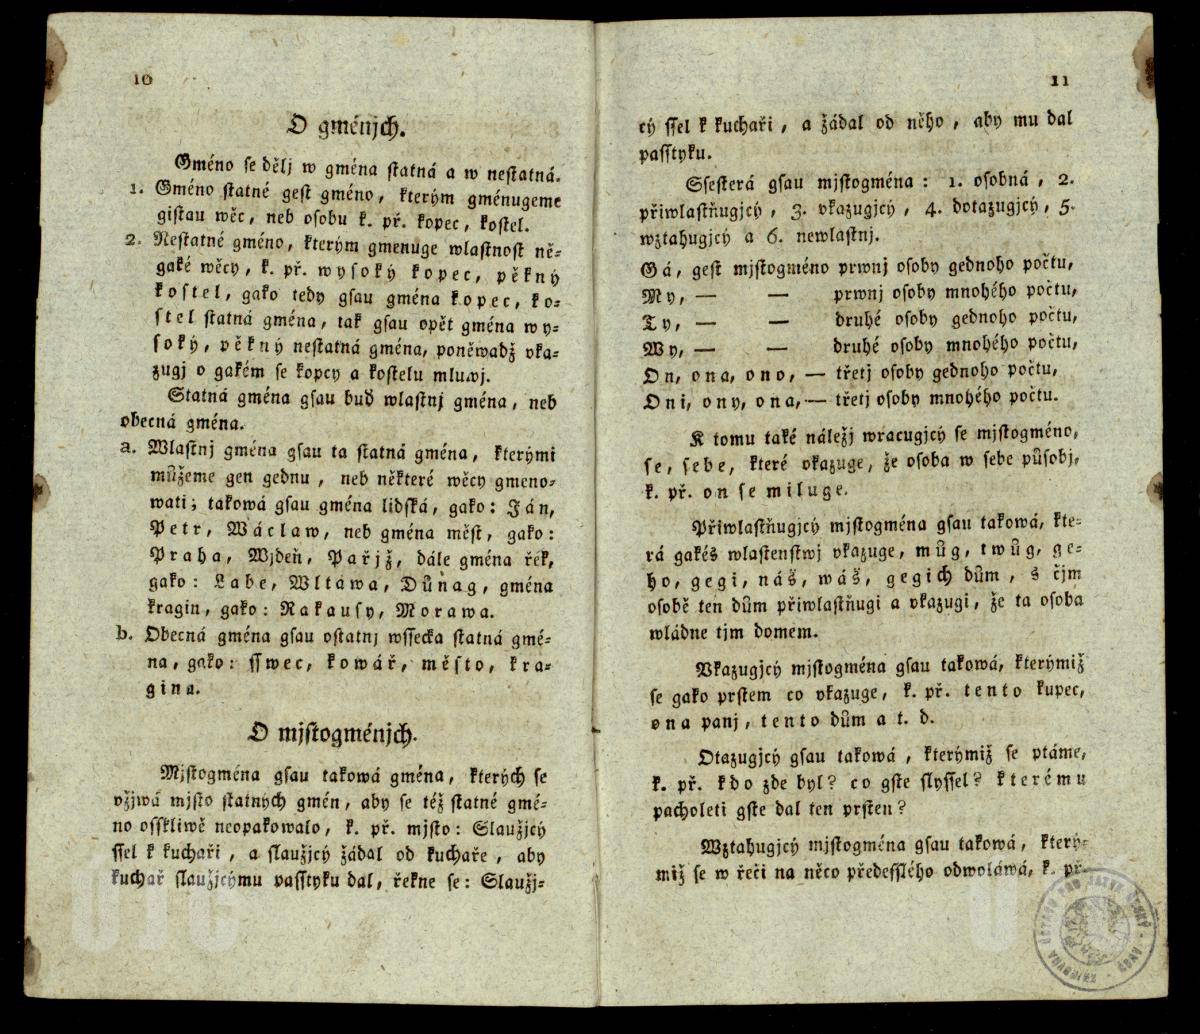 10
O gménjch.
Gméno se dělj w gména statná a w nestatná.
1. Gméno statné gest gméno, kterým gménugeme
gistau wěc, neb osobu k. př. kopec, kostel.
2. Nestatné gméno, kterým gmenuge wlastnost ně-
gaké wěcy, k. př. wysoký kopec, pěkný
kostel, gako tedy gsau gména kopec, ko-
stel statná gména, tak gsau opět gména wy-
soký, pěkný nestatná gména, poněwadž vka-
zugj o gakém se kopcy a kostelu mluwj.
Statná gména gsau buď wlastnj gména, neb
obecná gména.
a. Wlastnj gména gsau ta statná gména, kterými
můžeme gen gednu, neb některé wěcy gmeno-
wati; taková gsau gména lidská, gako: Ján,
Petr, Wáclaw, neb gména měst, gako:
Praha, Wjdeň, Pařjž, dále gména řek,
gako: Labe, Wltawa, Důnag, gména
kragin, gako: Rakausy, Morawa.
b. Obecná gména gsau ostatnj wssecka statná gmé-
na, gako: sswec, kowář, město, kra-
gina.
O mjstogménjch.
Mjstogména gsau taková gména, kterých se
vžjwá mjsto statných gmén, aby se též statné gmé-
no osskliwě neopakowalo, k. př. mjsto: Slaužjcý
ssel k kuchaři, a slaužjcý žádal od kuchaře, aby
kuchař slaužjcýmu passtyku dal, řekne se: Slaužj-
11
cý ssel k kuchaři, a žádal od něho, aby mu dal
passtyku.
Ssesterá gsau mjstogména: 1. osobná, 2.
přiwlastňugjcý, 3. vkazugjcý, 4. dotazugjcý, 5.
wztahugjcý a 6. newlastnj.
Gá, gest mjstogméno prwnj osoby gednoho počtu,
My, — — prwnj osoby mnohého počtu,
Ty, — — druhé osoby gednoho počtu,
Wy, — — druhé osoby mnohého počtu,
On, ona, ono, — třetj osoby gednoho počtu,
Oni, ony, ona, — třetj osoby mnohého počtu.
K tomu také náležj wracugjcý se mjstogméno,
se, sebe, které vkazuge, že osoba w sebe působj,
k. př. on se miluge.
Přiwlastňugjcý mjstogména gsau taková, kte-
rá gakés wlastenstwj vkazuge, můg, twůg, ge-
ho, gegi, náš, wáš, gegich dům, s čjm
osobě ten dům přiwlastňugi a vkazugi, že ta osoba
wládne tjm domem.
Vkazugjcý mjstogména gsau taková, kterýmiž
se gako prstem co vkazuge, k. př. tento kupec,
ona panj, tento dům a t. d.
Otazugjcý gsau taková, kterýmiž se ptáme,
k. př. kdo zde byl? co gste slyssel? kterému
pacholeti gste dal ten prsten?
Wztahugjcý mjstogména gsau taková, který-
miž se w řeči na něco předesslého odwoláwá, k. př.